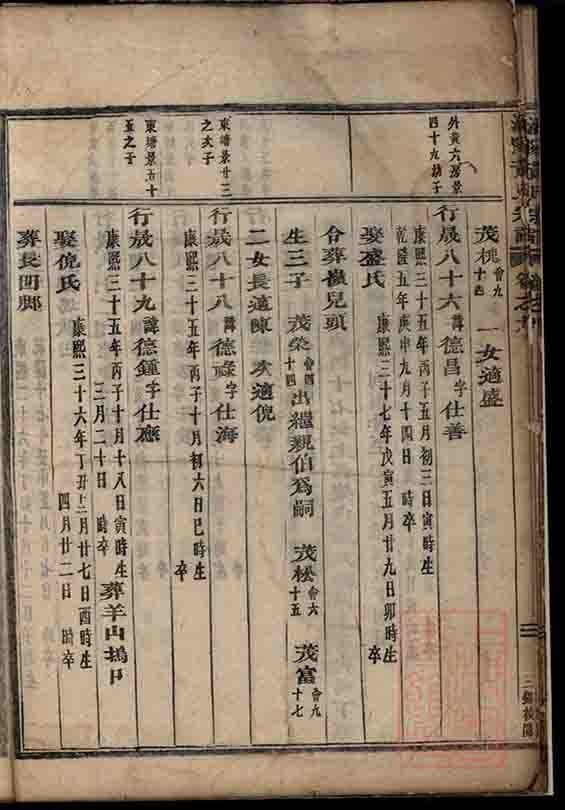 茂槐會九十四 一女適盛
外黃六房景四十九幼子
行晟八十六諱德昌字仕善
康熙三十五年丙子五月初三日寅時生
乾隆五年庚申九月十四日 時卒
娶盛氏
康熙三十七年戊寅五月廿九日卯時生
卒
合葬嶺兒頭
生三子 茂榮會四十四出繼親伯為嗣 茂松會六十五 茂富會九十七
二女長適陳 次適倪
東塘景廿三之次子
行晟八十八諱德祿字仕海
康熙三十五年丙子十月初六日巳時生
卒
東塘景五十五之子
行晟八十九諱德鐘字仕應
康熙三十五年丙子十月十八日寅時生
三月二十日 時卒
葬羊山塢口
娶倪氏
康熙三十六年丁丑三月廿七日酉時生
四月廿二日 時卒
葬長凹腳